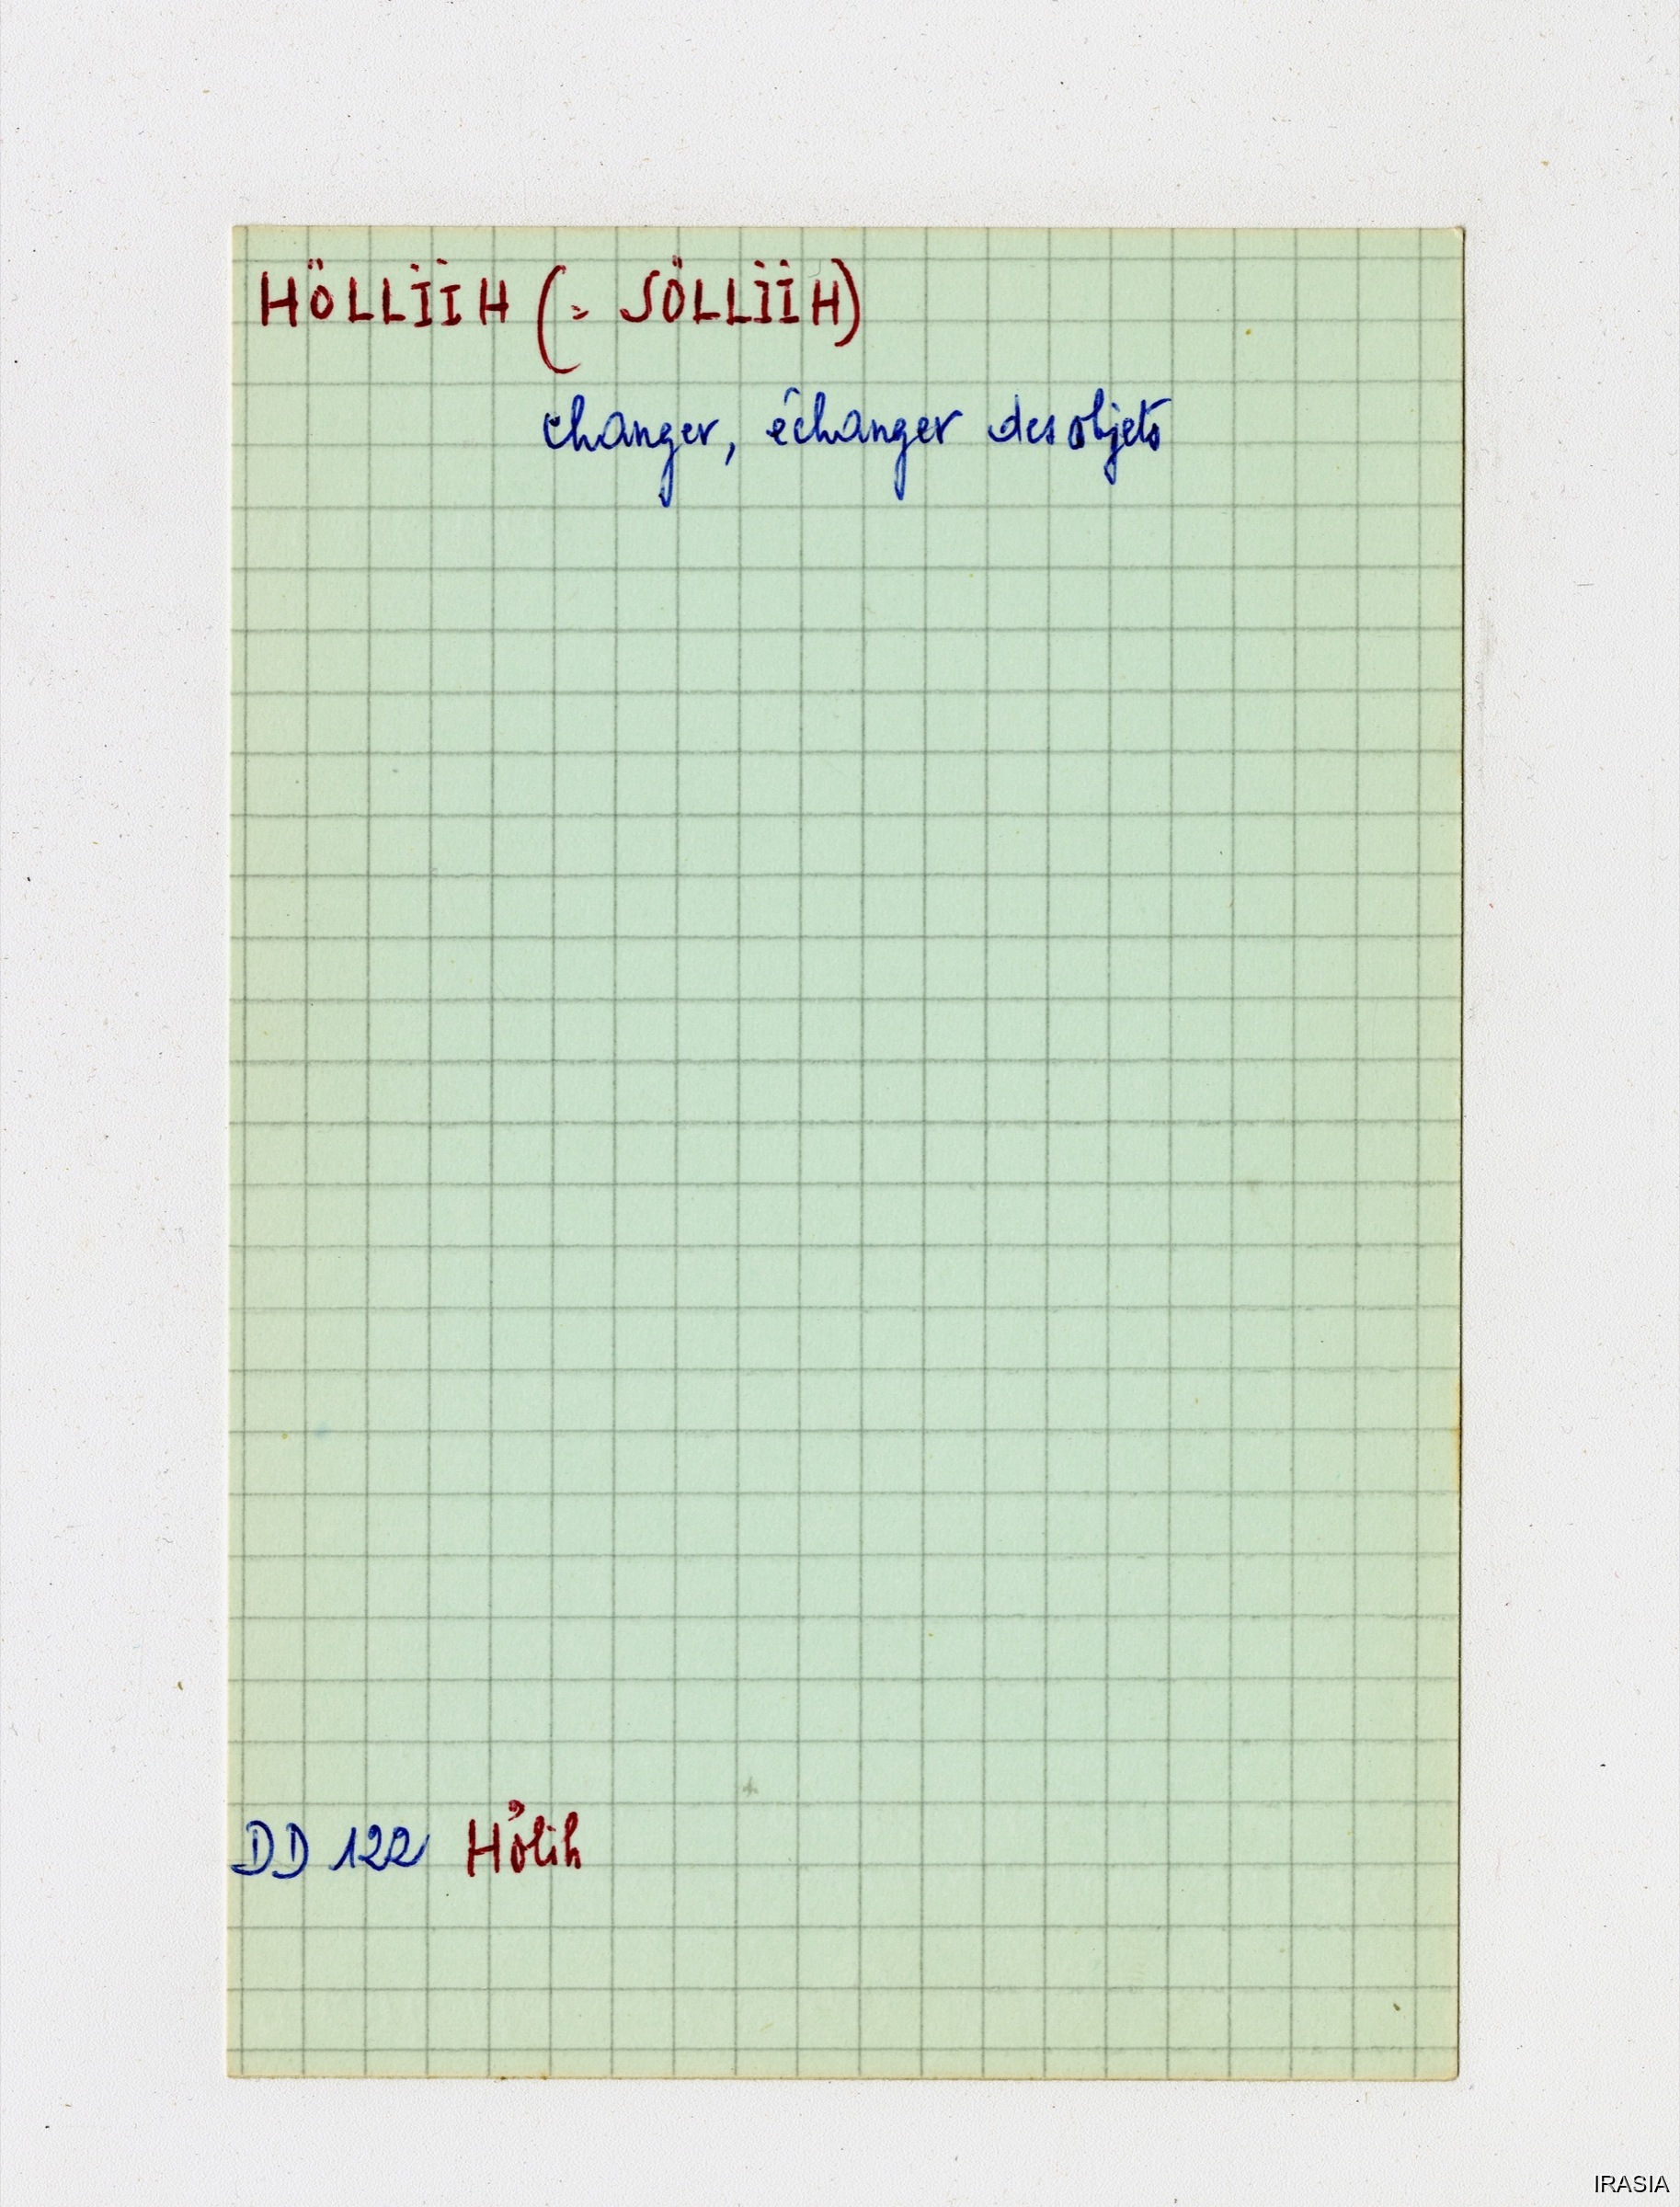 HÖLLÏÏH (= SÖLLÏÏH)
changer, échanger des objets
DD 122 Hölih
IRASIA